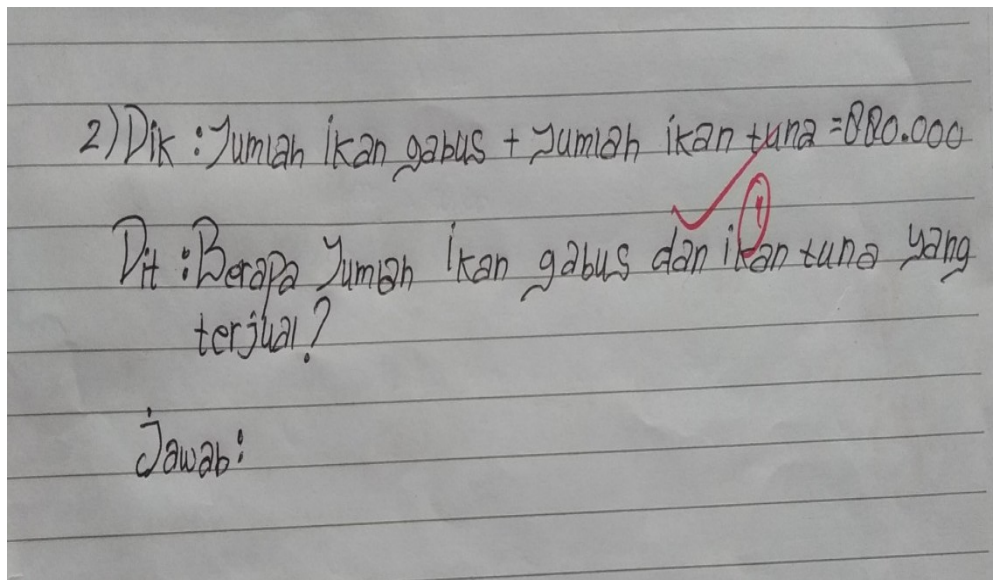 2) Dik : Jumlah ikan gabus + Jumlah ikan tuna = 880.000
Dit : Berapa Jumlah ikan gabus dan ikan tuna yang
terjual?
Jawab :